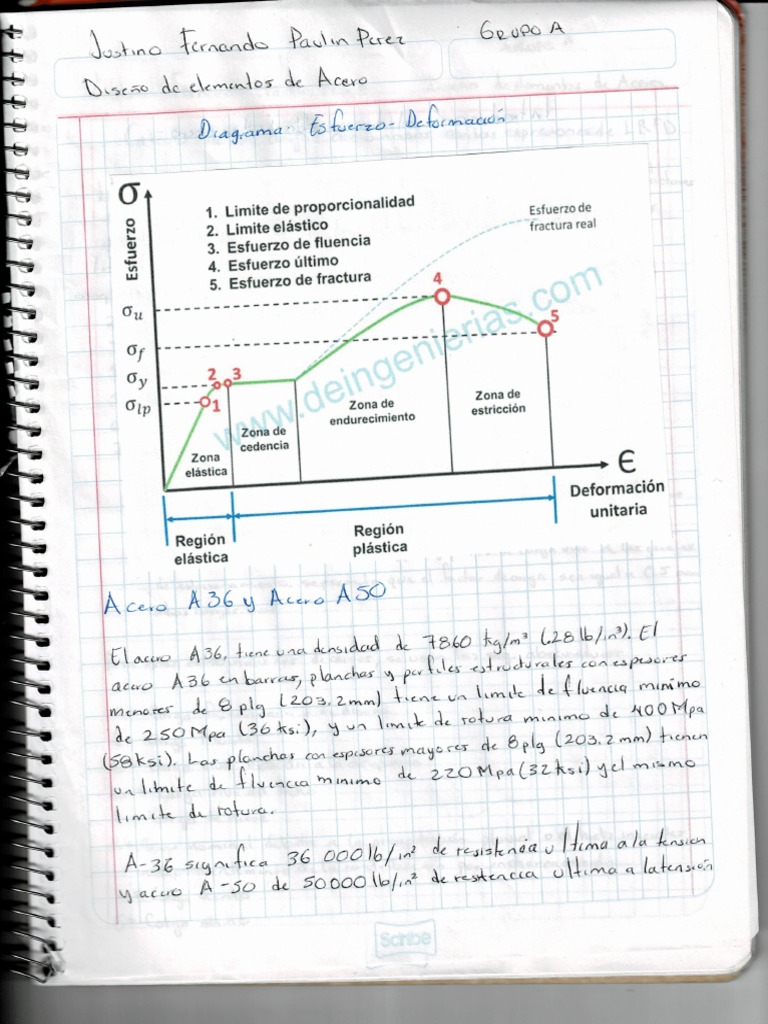 Justino Fernando Paulin Perez GRUPO A
Diseño de elementos de Acero
Diagrama Esfuerzo-Deformación
σ
Esfuerzo
1. Limite de proporcionalidad
2. Limite elástico
3. Esfuerzo de fluencia
4. Esfuerzo último
5. Esfuerzo de fractura
Esfuerzo de
fractura real
σu
σf
σy
σlp
1
2
3
4
5
www.deingenierias.com
Zona
elástica
Zona de
cedencia
Zona de
endurecimiento
Zona de
estricción
ϵ
Deformación
unitaria
Región
elástica
Región
plástica
Acero A36 y Acero A50
El acero A36, tiene una densidad de 7860 kg/m³ (.28 lb/in³). El
acero A36 en barras, planchas y perfiles estructurales con espesores
menores de 8 plg (203.2mm) tiene un limite de fluencia minimo
de 250 Mpa (36 ksi), y un limite de rotura minimo de 400 Mpa
(58 ksi). Las planchas con espesores mayores de 8 plg (203.2 mm) tienen
un limite de fluencia minimo de 220 Mpa (32 ksi) y el mismo
limite de rotura.
A-36 significa 36 000 lb/in² de resistencia ultima a la tension
y acero A-50 de 50000 lb/in² de restencia ultima a la tensión
Scribe